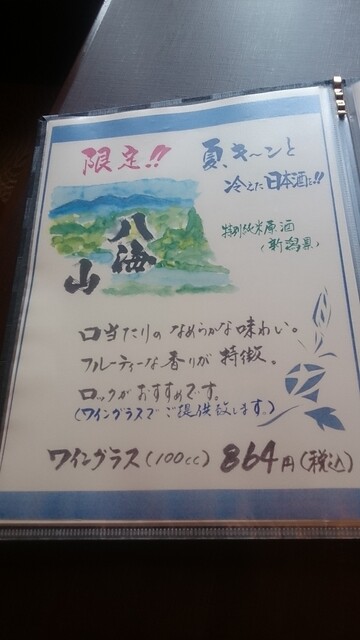 限定!!
夏、キ〜ンと
冷えた日本酒を!!
八海山
特別純米原酒
(新潟県)
口当たりの なめらかな味わい。
フルーティーな香りが特徴。
ロックがおすすめです。
(ワイングラスでご提供致します。)
ワイングラス(100cc) 864円(税込)